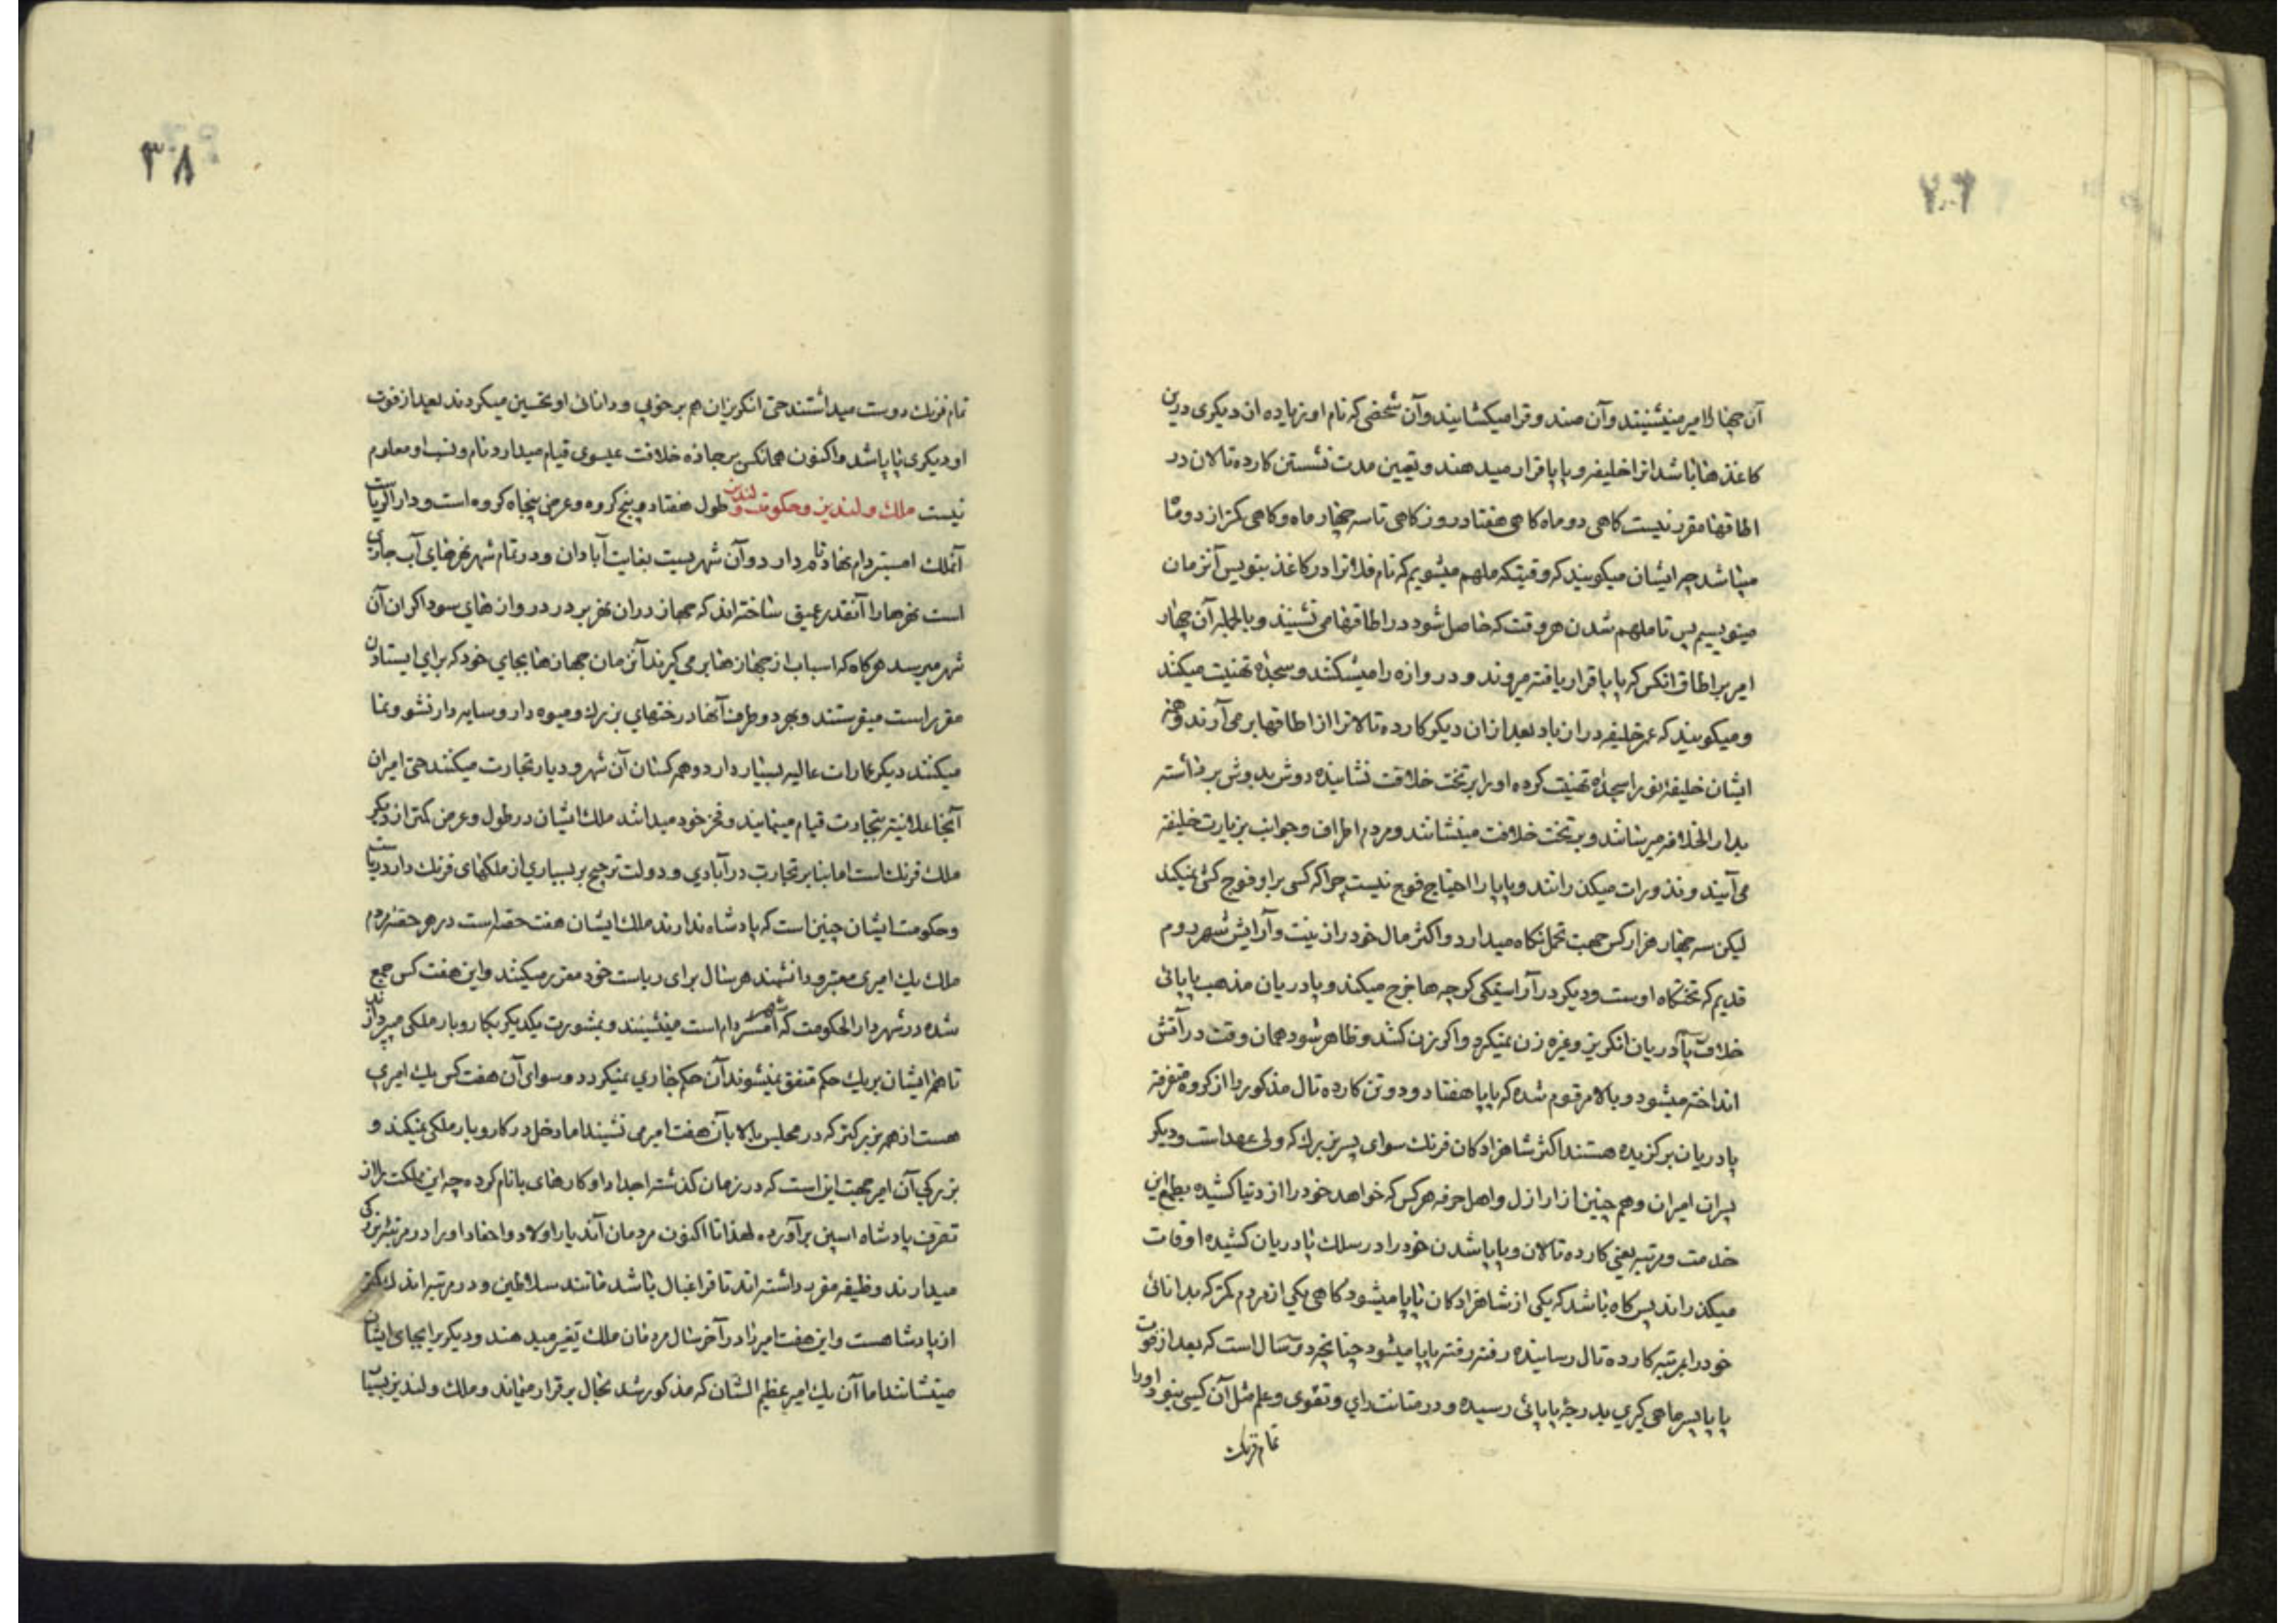 آن چهار امیر مینشینند و آن صندوقرا میکشایند و آن شخصی که نام او زیاده از دیکری درین
کاغذها باشد انرا خلیفه و پاپا قرار میدهند و تعیین مدت نشستن کارده تالان در
اطاقها مقرر نیست کاهی دو ماه کاهی هفتاد روز کاهی تا سه چهار ماه و کاهی کمتر از دو ماه
میباشد چه ایشان میکویند که وقتیکه ملهم میشویم که نام فلانرا در کاغذ بنویس آنزمان
مینویسیم پس تا ملهم شدن هر وقت که حاصل شود در اطاقها می نشینند و بالجمله آن چهار
امیر بر اطاق انکس که پاپا قرار یافته میروند و دروازه را میشکنند و سجدهٔ تهنیت میکند
و میکویند که عمر خلیفه دراز باد بعد ازان دیکر کارده تالانرا از اطاقها بر می آرند و همه
ایشان خلیفه نورا سجدهٔ تهنیت کرده او را بر تخت خلافت نشانیده دوش بدوش برداشته
بدار الخلافه میرسانند و بر تخت خلافت مینشانند و مردم اطراف و جوانب بزیارت خلیفه
می آیند و نذورات میکذرانند و پاپا را احتیاج فوج نیست چرا که کسی بر او فوج کشی نمیکند
لیکن سه چهار هزار کس جهت تجمل نکاه میدارد و اکثر مال خود را زینت و آرایش شهر روم
قدیم که تختکاه اوست و دیکر در آراستیکی کوچه ها خرج میکند و پادریان مذهب پاپائی
خلاف پادریان انکریز و غیره زن نمیکرد و اکر زن کشد و ظاهر شود همان وقت در آتش
انداخته میشود و بالا مرقوم شده که پاپا هفتاد و دو تن کارده تال مذکور را از کروه متفرقه
پادریان برکزیده هستند اکثر شاهزادکان فرنک سوای پسر بزرک که ولی عهد است و دیکر
پسران امیران و هم چنین از ارازل و اهل حرفه هر کس که خواهد خود را از دنیا کشیده بطمع این
خدمت و مرتبه یعنی کارده تالان و پاپا شدن خود را در سلک پادریان کشیده اوقات
میکذراند پس کاه باشد که یکی از شاهزادکان پاپا میشود کاهی یکی از مردم کمتر که بدانائی
خود را بمرتبه کارده تال رسانیده رفته رفته پاپا میشود چنانچه دو سال است که بعد از فوت
پاپا پسر ماهی کیری بدرجهٔ پاپائی رسیده و در متانت رای و تقوی و علم مثل آن کسی نبود او را
تمام فرنک
۳۸
تمام فرنک دوست میداشتند حتی انکریزان هم بر خوبی و دانائی او تحسین میکردند بعد از فوت
او دیکری پاپا شد و اکنون همانکس بر جاده خلافت عیسوی قیام میدارد و نام و نسب او معلوم
نیست ملک ولندیز و حکومت ولندیز طول هفتاد و پنج کروه و عرض پنجاه کروه است و دار الریاست
آنملک امستردام نهاد نام دارد و آن شهریست بغایت آبادان و در تمام شهر نهرهای آب جاری
است نهرها را آنقدر عمیق ساخته اند که جهاز دران نهر بر در دروازهای سوداکران آن
شهر میرسد هر کاه که اسباب از جهازها بر می کیرند آنزمان جهازها بجای خود که برای ایستادن
مقرر است میفرستند و بهر دو طرف آنها درختهای بزرک و میوه دار و سایه دار نشو و نما
میکنند دیکر عمارات عالیه بسیار دارد و همه کسان آن شهر و دیار تجارت میکنند حتی امیران
آنجا علانیه بتجارت قیام مینمایند و فخر خود میدانند ملک ایشان در طول و عرض کمتر از دیکر
ملک فرنک است اما بنابر تجارت در آبادی و دولت ترجیح بر بسیاری از ملکهای فرنک دارد ریاست
و حکومت ایشان چنین است که پادشاه ندارند ملک ایشان هفت حصه است در هر حصه مردم
ملک یک امیری معتبر و دانشمند هر سال برای ریاست خود مقرر میکنند و این هفت کس جمع
شده در شهر دار الحکومت که امستردام است مینشینند و بمشورت یکدیکر بکار و بار ملکی میپردازند
تا همه ایشان بر یک حکم متفق نمیشوند آن حکم جاری نمیکردد و سوای آن هفت کس یک امیری
هست از همه بزرکتر که در مجلس بالا بآن هفت امیر می نشیند اما دخل در کار و بار ملکی نمیکند و
بزرکی آن امیر جهت این است که در زمان کذشته اجداد او کارهای بانام کرده چه این مملکت را از
تصرف پادشاه اسپین بر آورده لهذا تا اکنون مردمان آندیار اولاد و احفاد او را در مرتبه بزرکی
میدارند وظیفه مقرر داشته اند تا فراغبال باشد مانند سلاطین و در مرتبه اندک کمتر
از پادشاهست و این هفت امیر را در آخر سال مردمان ملک تغیر میدهند و دیکر برا بجای ایشان
مینشانند اما آن یک امیر عظیم الشان که مذکور شد بحال برقرار میماند و ملک ولندیز بسیار